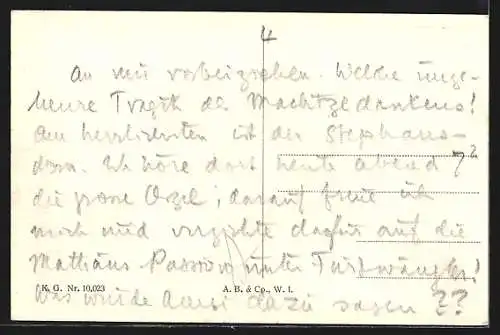 4
an mir vorbeiziehen. Welche unge-
heure Tragik des Machtgedankens!
Am herrlichsten ist der Stephans-
dom. Ich höre dort heute abend 7²
die grosse Orgel; darauf freue ich
mich und verzichte dafür auf die
Mathäus-Passion unter Furtwängler!
K. G. Nr. 10,023 A. B. & Co., W. I.
Was würde dazu sagen ??